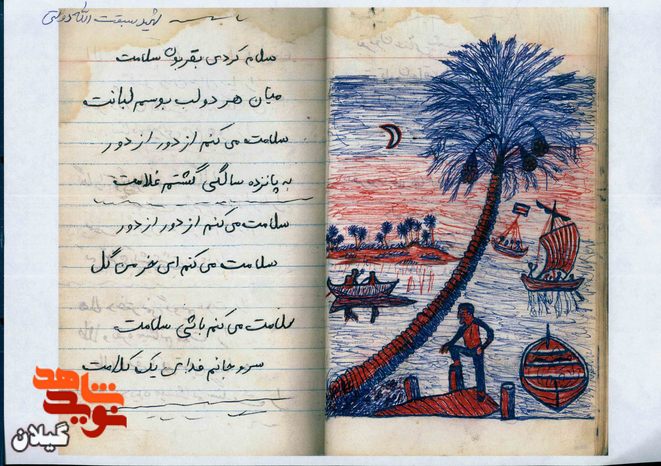 شهید
سلام کردی بقربون سلامت
میان هر دو لب بوسم لبانت
سلامت می کنم از دور از دور
به پانزده سالگی گشتم غلامت
سلامت می کنم از دور از دور
سلامت می کنم ای خرمن گل
سلامت می کنم باشی سلامت
سر و جانم فدای یک کلامت
نوید شاهد
گیلان